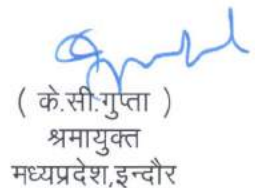 ( के.सी.गुप्ता )
श्रमायुक्त
मध्यप्रदेश,इन्दौर